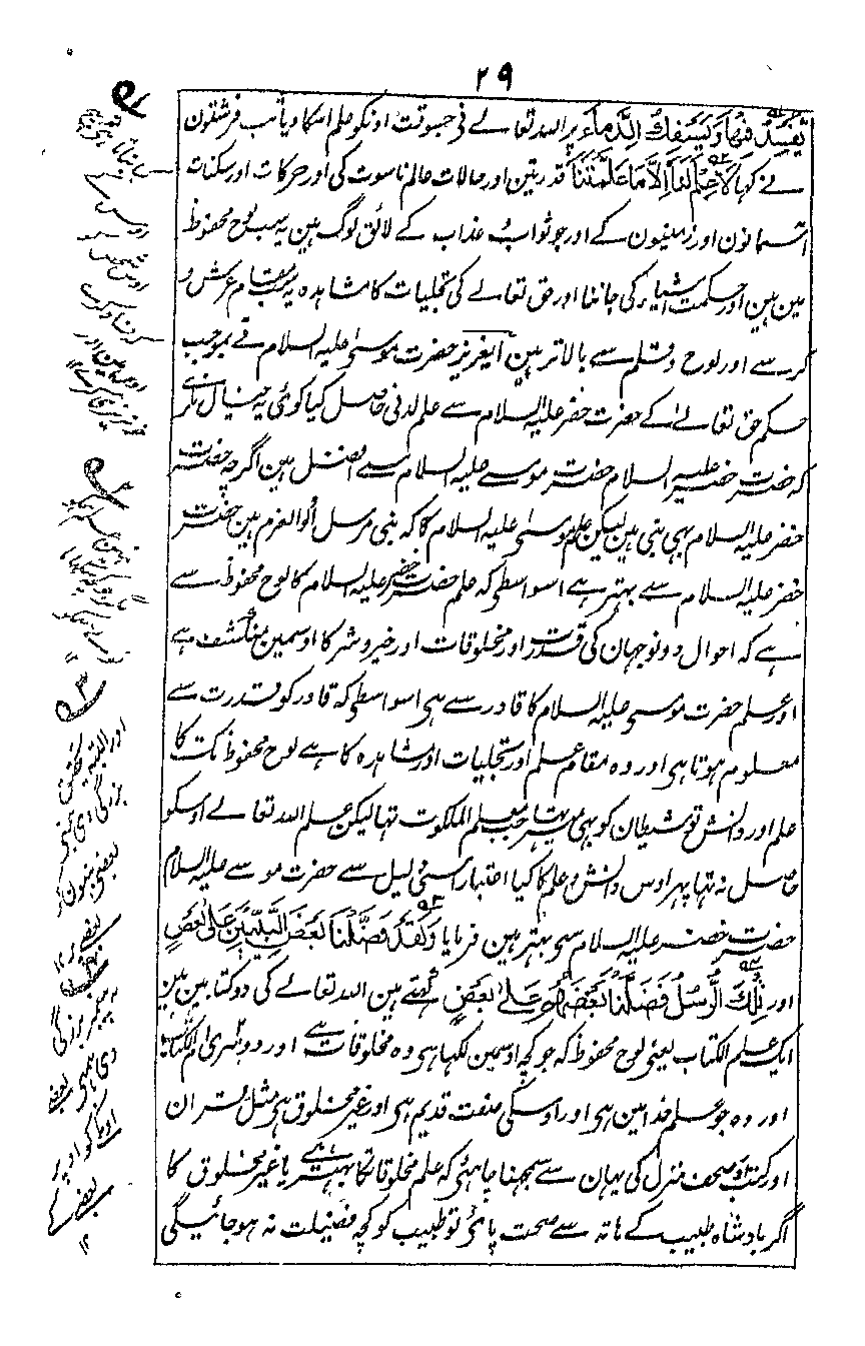 ۲۹
يُفْسِدُ فِيْهَا وَيَسْفِكُ الدِّمَآءَ پر اللہ تعالے نی جسوقت اونکو علم اسما دیا تب فرشتون
نے کہا لَا عِلْمَ لَنَآ اِلَّا مَا عَلَّمْتَنَا قدرتین اور حالات عالم ناسوت کی اور حرکات اور سکنات
آسمانون اور زمینون کے اور جو ثواب و عذاب کے لائق لوگ ہین یہ سب لوح محفوظ
مین ہین اور حکمت اشیاء کی جاننا اور حق تعالے کی تجلیات کا مشاہدہ یہ سب مقام عرش و
کرسے اور لوح و قلم سے بالاتر ہین ایعزیز حضرت موسیٰ علیہ السلام نے بموجب
حکم حق تعالےٰ کے حضرت خضر علیہ السلام سے علم لدنی حاصل کیا کوئی یہ خیال نکرے
کہ حضرت خضر علیہ السلام حضرت موسے علیہ السلام سے افضل ہین اگرچہ حضرت
خضر علیہ السلام بہی نبی ہین لیکن علم موسیٰ علیہ السلام کا کہ نبی مرسل اُلوالعزم ہین حضرت
خضر علیہ السلام سے بہتر ہے اسواسطی کہ علم حضرت خضر علیہ السلام کا لوح محفوظ سے
ہے کہ احوال دونوجہان کی قدرت اور مخلوقات اور خیر و شر کا اوسمین منکشف ہے
اور علم حضرت موسیٰ علیہ السلام کا قادر سے ہی اسواسطی کہ قادر کو قدرت سے
معلوم ہوتا ہی اور وہ مقام علم اور تجلیات اور مشاہدہ کا ہے لوح محفوظ تک کا
علم اور دانش تو شیطان کو بہی میسر تہا جب معلم الملکوت تہا لیکن علم اللہ تعالے اوسکو
حاصل نہ تہا پہر اوس دانش و علم کا کیا اعتبار اسی دلیل سے حضرت موسے علیہ السلام
حضرت خضر علیہ السلام سی بہتر ہین فرمایا وَلَقَدْ فَضَّلْنَا بَعْضَ النَّبِيّٖنَ عَلٰى بَعْضٍ
اور تِلْكَ الرُّسُلُ فَضَّلْنَا بَعْضَهُمْ عَلٰى بَعْضٍ کہتے ہین اللہ تعالے کی دو کتابین ہین
ایک علم الکتاب یعنی لوح محفوظ کہ جو کچہ اوسمین لکہا ہی وہ مخلوقات سے اور دوسری ام الکتاب
اور وہ جو علم خدا مین ہی اور اوسکی صفت قدیم ہی اور غیر مخلوق ہی مثل قران
اور کتب و صحف منزل کی یہان سے سمجہنا چاہئی کہ علم مخلوقات کا بہتر ہے یا غیر مخلوق کا
اگر بادشاہ طبیب کے ہاتہ سے صحت پائی تو طبیب کو کچہ فضیلت نہ ہو جائیگی
اور البتہ تحقیق
بزرگی دی ہمنی
بعضی نبیون کو
بعضے پر ۱۲
یہ پیغمبر بزرگی
دی ہمنی بعضے
اونکا کو اوپر
بعضے کے
۱۲